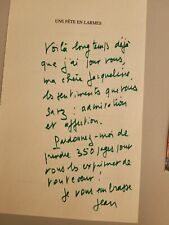 UNE FÊTE EN LARMES
Voilà longtemps déjà
que j'ai pour vous,
ma chère Jacqueline,
les sentiments que vous
savez : admiration
et affection.
Pardonnez-moi de
prendre 350 pages pour
vous les exprimer de
tout coeur !
Je vous embrasse
Jean